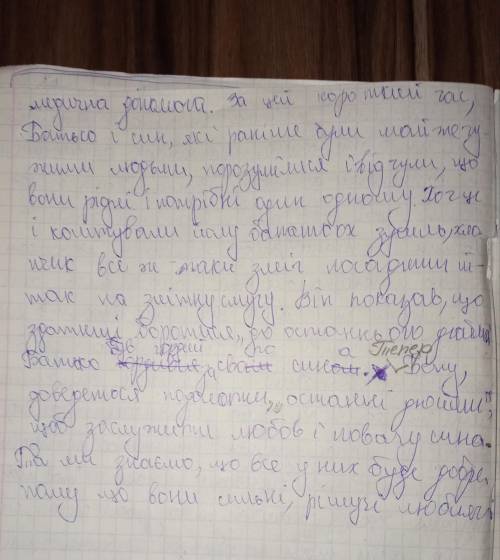 медична допомога. За цей короткий час,
батько і син, які раніше були майже чу-
жими людьми, порозумілися і відчули, що
вони рідні і потрібні один одному. Хоч це
і коштували йому багатьох зусиль, хло
пчик все ж таки зміг посадити лі-
так на злітну смугу. Він показав, що
здатний боротися, до останнього дюйма
був гордий за Тепер
Батько свого сина. йому,
доведеться подолати, „останні дюйми",
щоб заслужити любов і повагу сина.
Та ми знаємо, що все у них буде добре,
тому що вони сильні, рішучі люблять